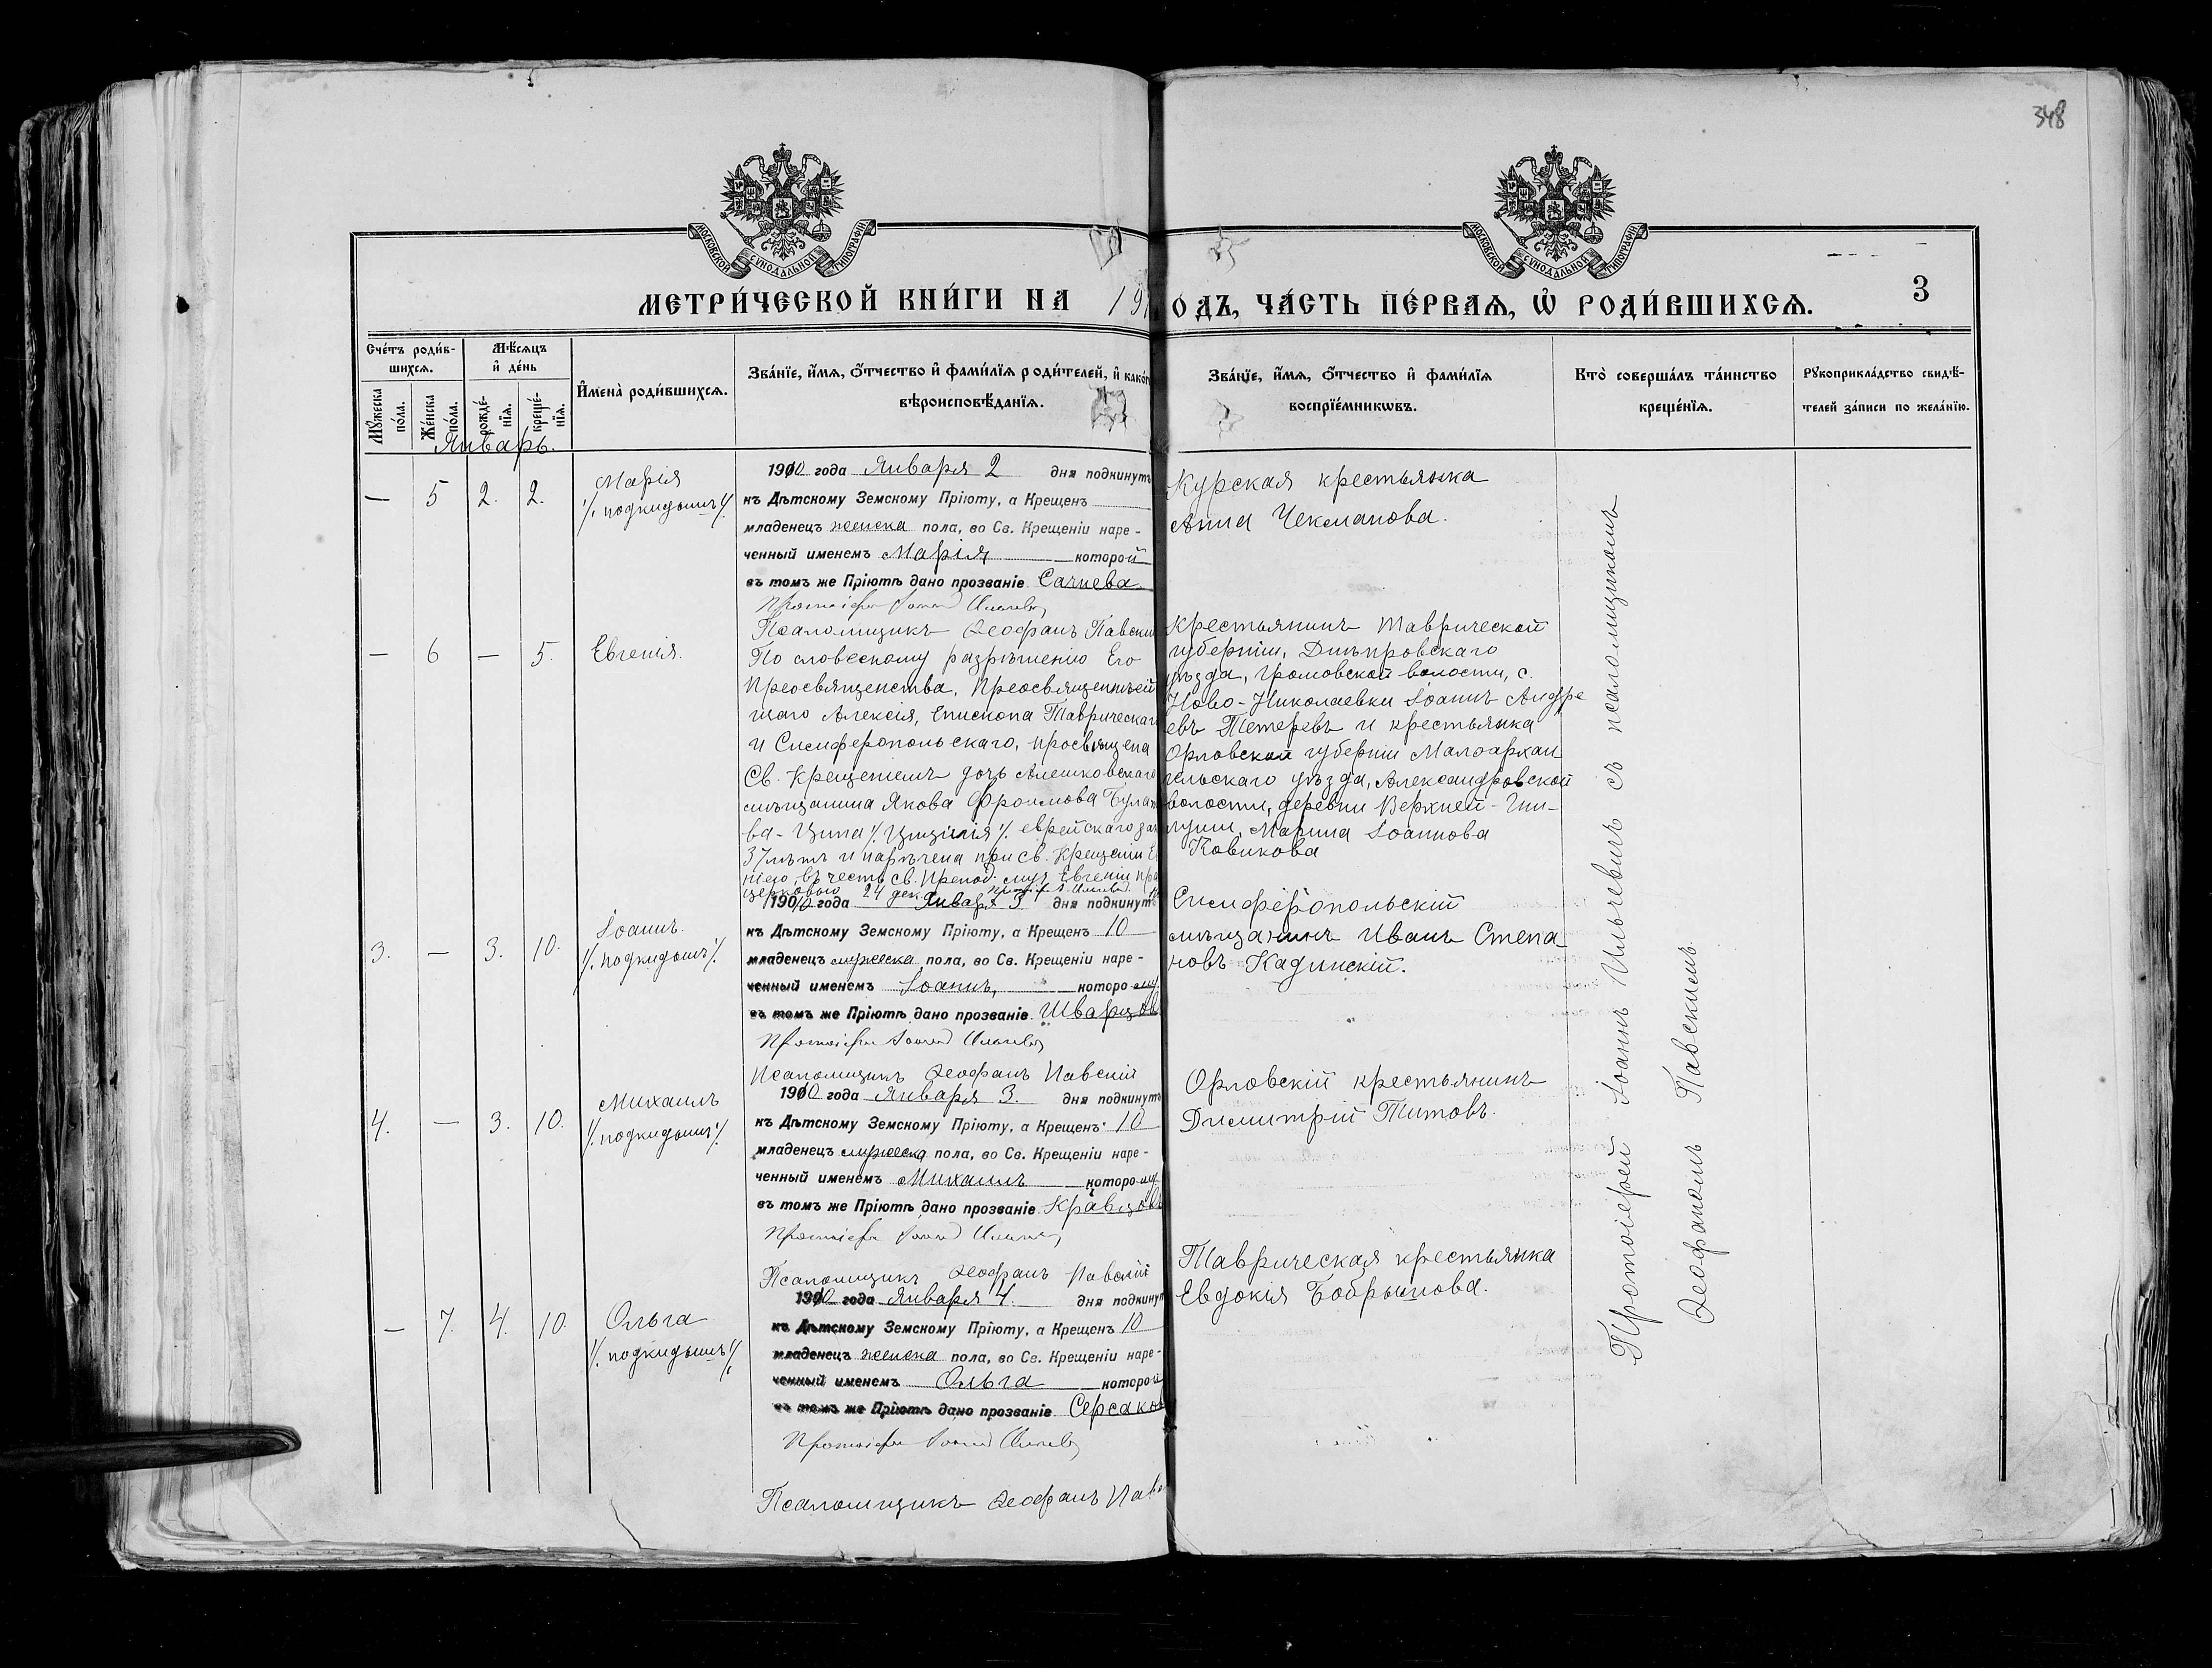 348
МОСКОВСКОЙ СѴНОДАЛЬНОЙ ТИПОГРАФІИ
МОСКОВСКОЙ СѴНОДАЛЬНОЙ ТИПОГРАФІИ
МЕТРИ́ЧЕСКОЙ КНИ́ГИ НА 19
ОДЪ, ЧА́СТЬ ПЕ́РВАѦ, Ѿ РОДИ́ВШИХСѦ.
3
Сче́тъ роди́в-
шихсѧ.
Мѣ́сѧцъ
и҆ де́нь
Мꙋ́жеска
по́ла.
Же́нска
по́ла.
рожде́-
нїѧ.
креще́-
нїѧ.
И҆мена̀ роди́вшихсѧ.
Зва́нїе, и҆́мѧ, ѻ҆́тчество и҆ фами́лїѧ роди́телей, и҆ како́г
вѣроисповѣ́данїѧ.
Зва́нїе, и҆́мѧ, ѻ҆́тчество и҆ фами́лїѧ
воспрїе́мникѡвъ.
Кто̀ соверша́лъ та́инство
креще́нїѧ.
Рꙋкоприкла́дство свидѣ́-
телей за́писи по жела́нїю.
Январь.
— 5 2. 2.
Марія
/. подкидышъ /.
1910 года Января 2 дня подкинутъ
къ Дѣтскому Земскому Пріюту, а Крещенъ
младенецъ женска пола, во Св. Крещеніи наре-
ченный именемъ Марія которой
въ томъ же Пріютѣ дано прозваніе
Протоіерей Іоаннъ Ильчевъ
Псаломщикъ Ѳеофанъ Павский
Курская крестьянка
Анна Чекмапова.
— 6 — 5.
Евгенія.
По словесному разрѣшенію Его
Преосвященства, Преосвященнѣй
шаго Алексія, Епископа Таврическаго
и Симферопольскаго, просвящена
Св. Крещеніемъ дочь Алешковскаго
мѣщанина Якова Фроимова
ва - Ципа /. Цицилія /. еврейскаго зак
37 лѣтъ и наречена при св. Крещеніи Е
ніею, въ честь св. Препод. муч. Евгеніи пра
церковью 24 дек.
Крестьянинъ Таврической
губерніи, Днѣпровскаго
уѣзда, Громовской волости, с.
Ново-Николаевки Іоаннъ Андре
евъ Тетеревъ и крестьянка
Орловской губерніи Малоархан
гельскаго уѣзда, Александровской
волости, деревни Верхней - Гни-
луши, Марина Іоаннова
Новикова
3. — 3. 10.
Іоаннъ.
/. подкидышъ /.
1910 года Января 3 дня подкинутъ
къ Дѣтскому Земскому Пріюту, а Крещенъ 10
младенецъ мужеска пола, во Св. Крещеніи наре-
ченный именемъ Іоаннъ, которому
въ томъ же Пріютѣ дано прозваніе Шварцов
Протоіерей Іоаннъ Ильчевъ
Псаломщикъ Ѳеофанъ Павскій
Симферопольскій
мѣщанинъ Иванъ Степа
новъ Кадинскій.
4. — 3. 10.
Михаилъ
/. подкидышъ /.
1910 года Января 3. дня подкинутъ
къ Дѣтскому Земскому Пріюту, а Крещенъ 10
младенецъ мужеска пола, во Св. Крещеніи наре-
ченный именемъ Михаилъ которому
въ томъ же Пріютѣ дано прозваніе Кравцовъ
Протоіерей Іоаннъ Ильчевъ
Псаломщикъ Ѳеофанъ Павскій
Орловскій крестьянинъ
Димитрій Титовъ.
— 7. 4. 10.
Ольга
/. подкидышъ /.
1910 года Января 4. дня подкинут
къ Дѣтскому Земскому Пріюту, а Крещенъ 10
младенецъ женска пола, во Св. Крещеніи наре-
ченный именемъ Ольга которой
въ томъ же Пріютѣ дано прозваніе Серсаков
Протоіерей Іоаннъ Ильчевъ
Псаломщикъ Ѳеофанъ Пав
Таврическая крестьянка
Евдокія Бобрышова.
Протоіерей Іоаннъ Ильчевичъ съ псаломщикомъ
Ѳеофаномъ Павскимъ.